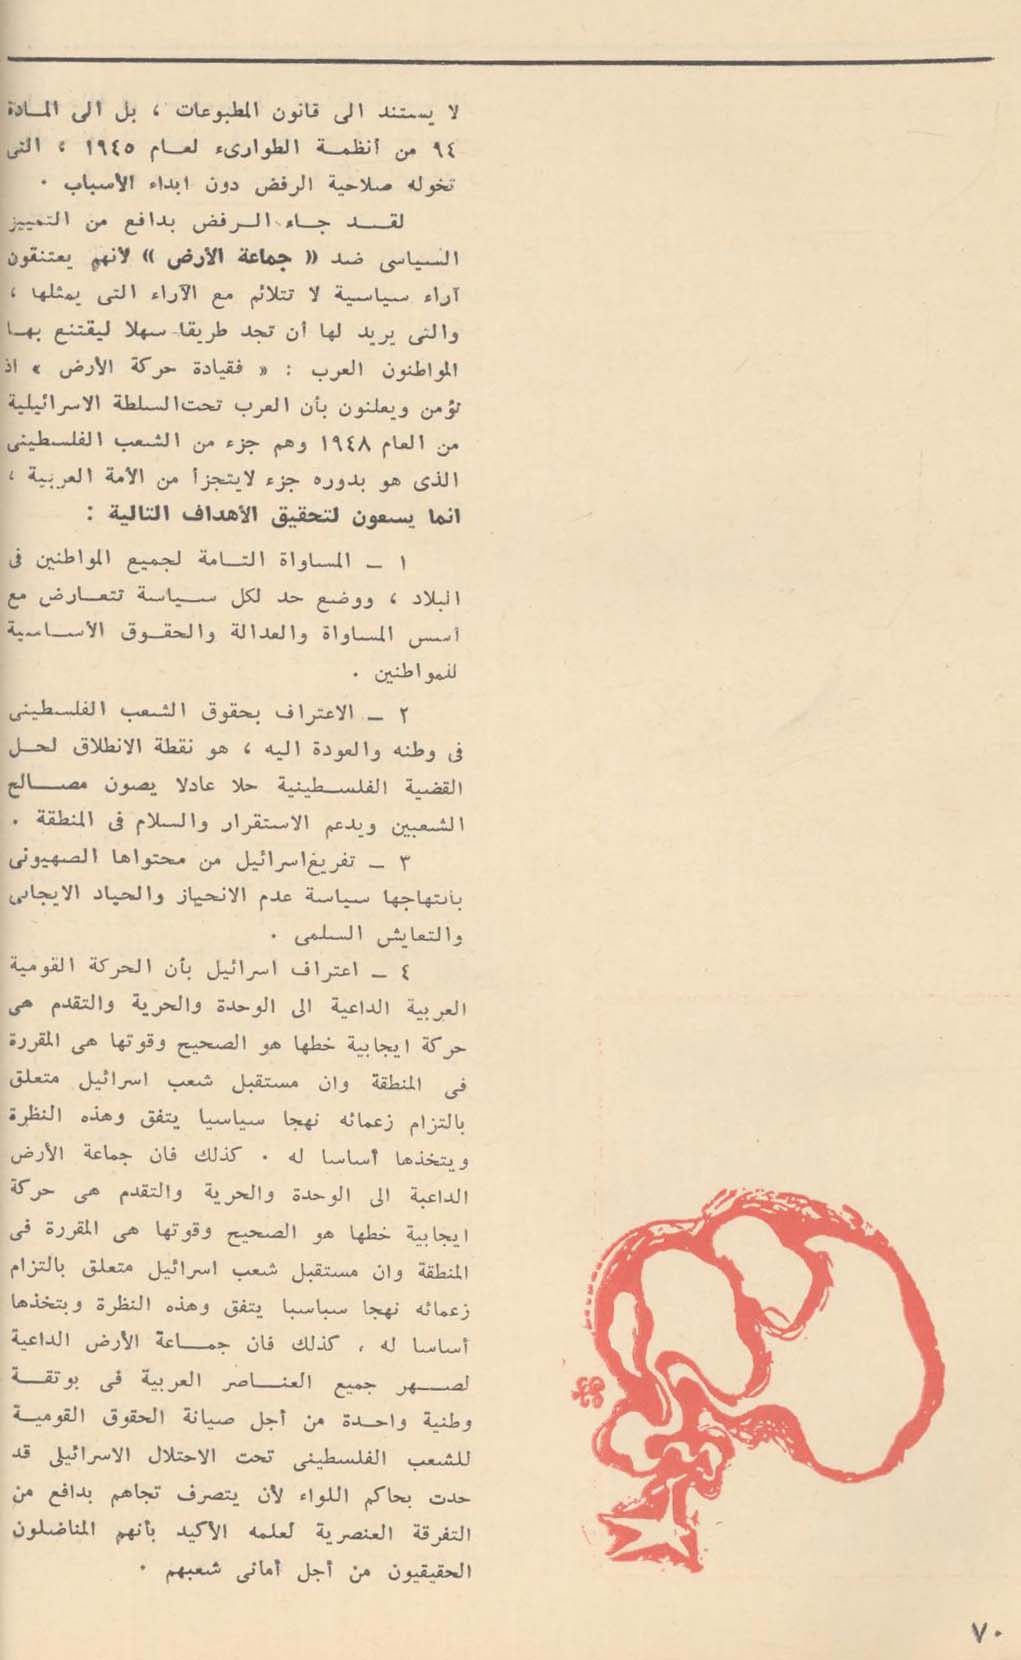 لا يستند الى قانون المطبوعات ، بل الى المــادة
٩٤ من أنظمــة الطوارىء لعــام ١٩٤٥ ، التى
تخوله صلاحية الرفض دون ابداء الأسباب .
لقــد جــاء الــرفض بدافع من التمييز
السياسى ضد « جماعة الأرض » لأنهم يعتنقون
آراء سياسية لا تتلائم مع الآراء التى يمثلها ،
والتى يريد لها أن تجد طريقا سهلا ليقتنع بهــا
المواطنون العرب : « فقيادة حركة الأرض » اذ
تؤمن ويعلنون بأن العرب تحت السلطة الاسرائيلية
من العام ١٩٤٨ وهم جزء من الشعب الفلسطينى
الذى هو بدوره جزء لايتجزأ من الأمة العربية ،
انما يسعون لتحقيق الأهداف التالية :
١ ــ المساواة التــامة لجميع المواطنين فى
البلاد ، ووضع حد لكل سيــاسة تتعــارض مع
أسس المساواة والعدالة والحقــوق الأســاسية
للمواطنين .
٢ ــ الاعتراف بحقوق الشعب الفلسطينى
فى وطنه والعودة اليه ، هو نقطة الانطلاق لحــل
القضية الفلســطينية حلا عادلا يصون مصــالح
الشعبين ويدعم الاستقرار والسلام فى المنطقة .
٣ ــ تفريغ اسرائيل من محتواها الصهيونى
بانتهاجها سياسة عدم الانحياز والحياد الايجابى
والتعايش السلمى .
٤ ــ اعتراف اسرائيل بأن الحركة القومية
العربية الداعية الى الوحدة والحرية والتقدم هى
حركة ايجابية خطها هو الصحيح وقوتها هى المقررة
فى المنطقة وان مستقبل شعب اسرائيل متعلق
بالتزام زعمائه نهجا سياسيا يتفق وهذه النظرة
ويتخذها أساسا له . كذلك فان جماعة الأرض
الداعية الى الوحدة والحرية والتقدم هى حركة
ايجابية خطها هو الصحيح وقوتها هى المقررة فى
المنطقة وان مستقبل شعب اسرائيل متعلق بالتزام
زعمائه نهجا سياسيا يتفق وهذه النظرة ويتخذها
أساسا له . كذلك فان جمــاعة الأرض الداعية
لصــهر جميع العنــاصر العربية فى بوتقــة
وطنية واحــدة من أجل صيانة الحقوق القوميــة
للشعب الفلسطينى تحت الاحتلال الاسرائيلى قد
حدت بحاكم اللواء لأن يتصرف تجاهم بدافع من
التفرقة العنصرية لعلمه الأكيد بأنهم المناضلون
الحقيقيون من أجل أمانى شعبهم .
٧٠